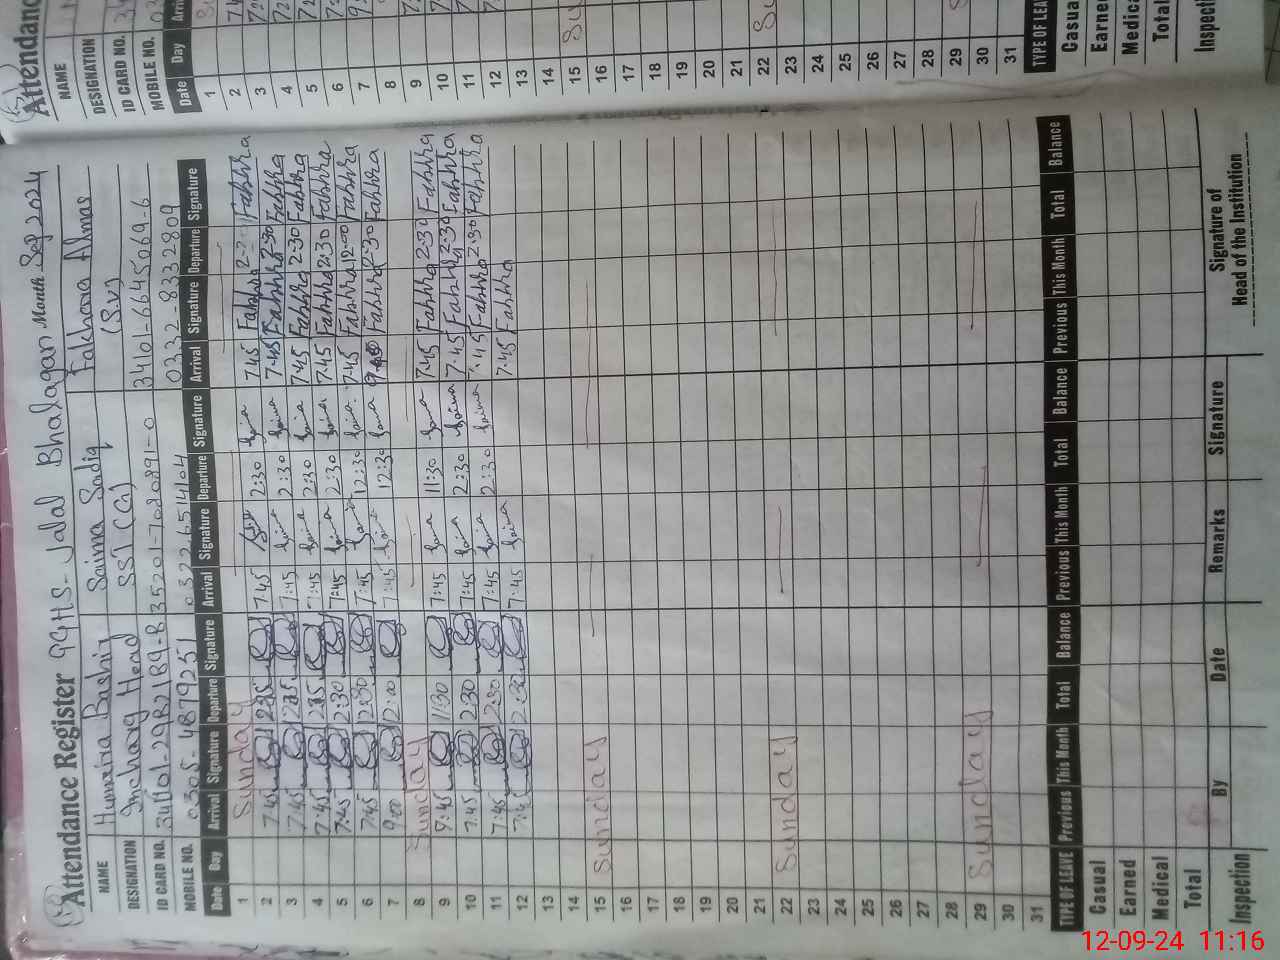 Attendance Register GGHS- Jalal Bhalagan Month Sep 2024
NAME Humaira Bashir Saima Sadiq Fakhara Almas
DESIGNATION Incharg Head SST (G) (S.V)
ID CARD NO. 34101-2982189-8 35201-7020891-0 3401-6645069-6
MOBILE NO. 0305-487925 03226514104 0332-8332809
Date Day Arrival Signature Departure Signature Arrival Signature Departure Signature Arrival Signature Departure Signature
1 Sunday
2 7:45 7:45 2:30 Saima 7:45 Fakhra Fakhra
3 7:45 7:45 Saima 2:30 Saima 7:45 Fakhra 2:30 Fakhra
4 7:45 7:45 Saima 2:30 Saima 7:45 Fakhra 2:30 Fakhra
5 7:45 2:30 7:45 Saima 2:30 Saima 7:45 Fakhra 2:30 Fakhra
6 7:45 12:30 7:45 Saima 12:30 Saima 7:45 Fakhra 12:00 Fakhra
7 9:00 12:00 7:45 Saima 12:30 Saima Fakhra 2:30 Fakhra
8 Sunday
9 7:45 11:30 7:45 Saima 11:30 Saima 7:45 Fakhra 2:30 Fakhra
10 7:45 2:30 7:45 Saima 2:30 Saima 7:45 Fakhra 2:30 Fakhra
11 7:45 2:30 7:45 Saima 2:30 Saima 7:45 Fakhra 2:30 Fakhra
12 7:45 2:30 7:45 Saima 7:45 Fakhra
13
14
15 Sunday
16
17
18
19
20
21
22 Sunday
23
24
25
26
27
28
29 Sunday
30
31
TYPE OF LEAVE Previous This Month Total Balance Previous This Month Total Balance Previous This Month Total Balance
Casual
Earned
Medical
Total
Inspection By Date Remarks Signature Signature of
Head of the Institution
Attendanc
NAME
DESIGNATION
ID CARD NO.
MOBILE NO.
Date Day Arri
1
2
3
4
5
6
7
8
9
10
11
12
13
14
15 Su
16
17
18
19
20
21
22 Su
23
24
25
26
27
28
29 S
30
31
TYPE OF LEAV
Casual
Earned
Medica
Total
Inspecti
12-09-24 11:16